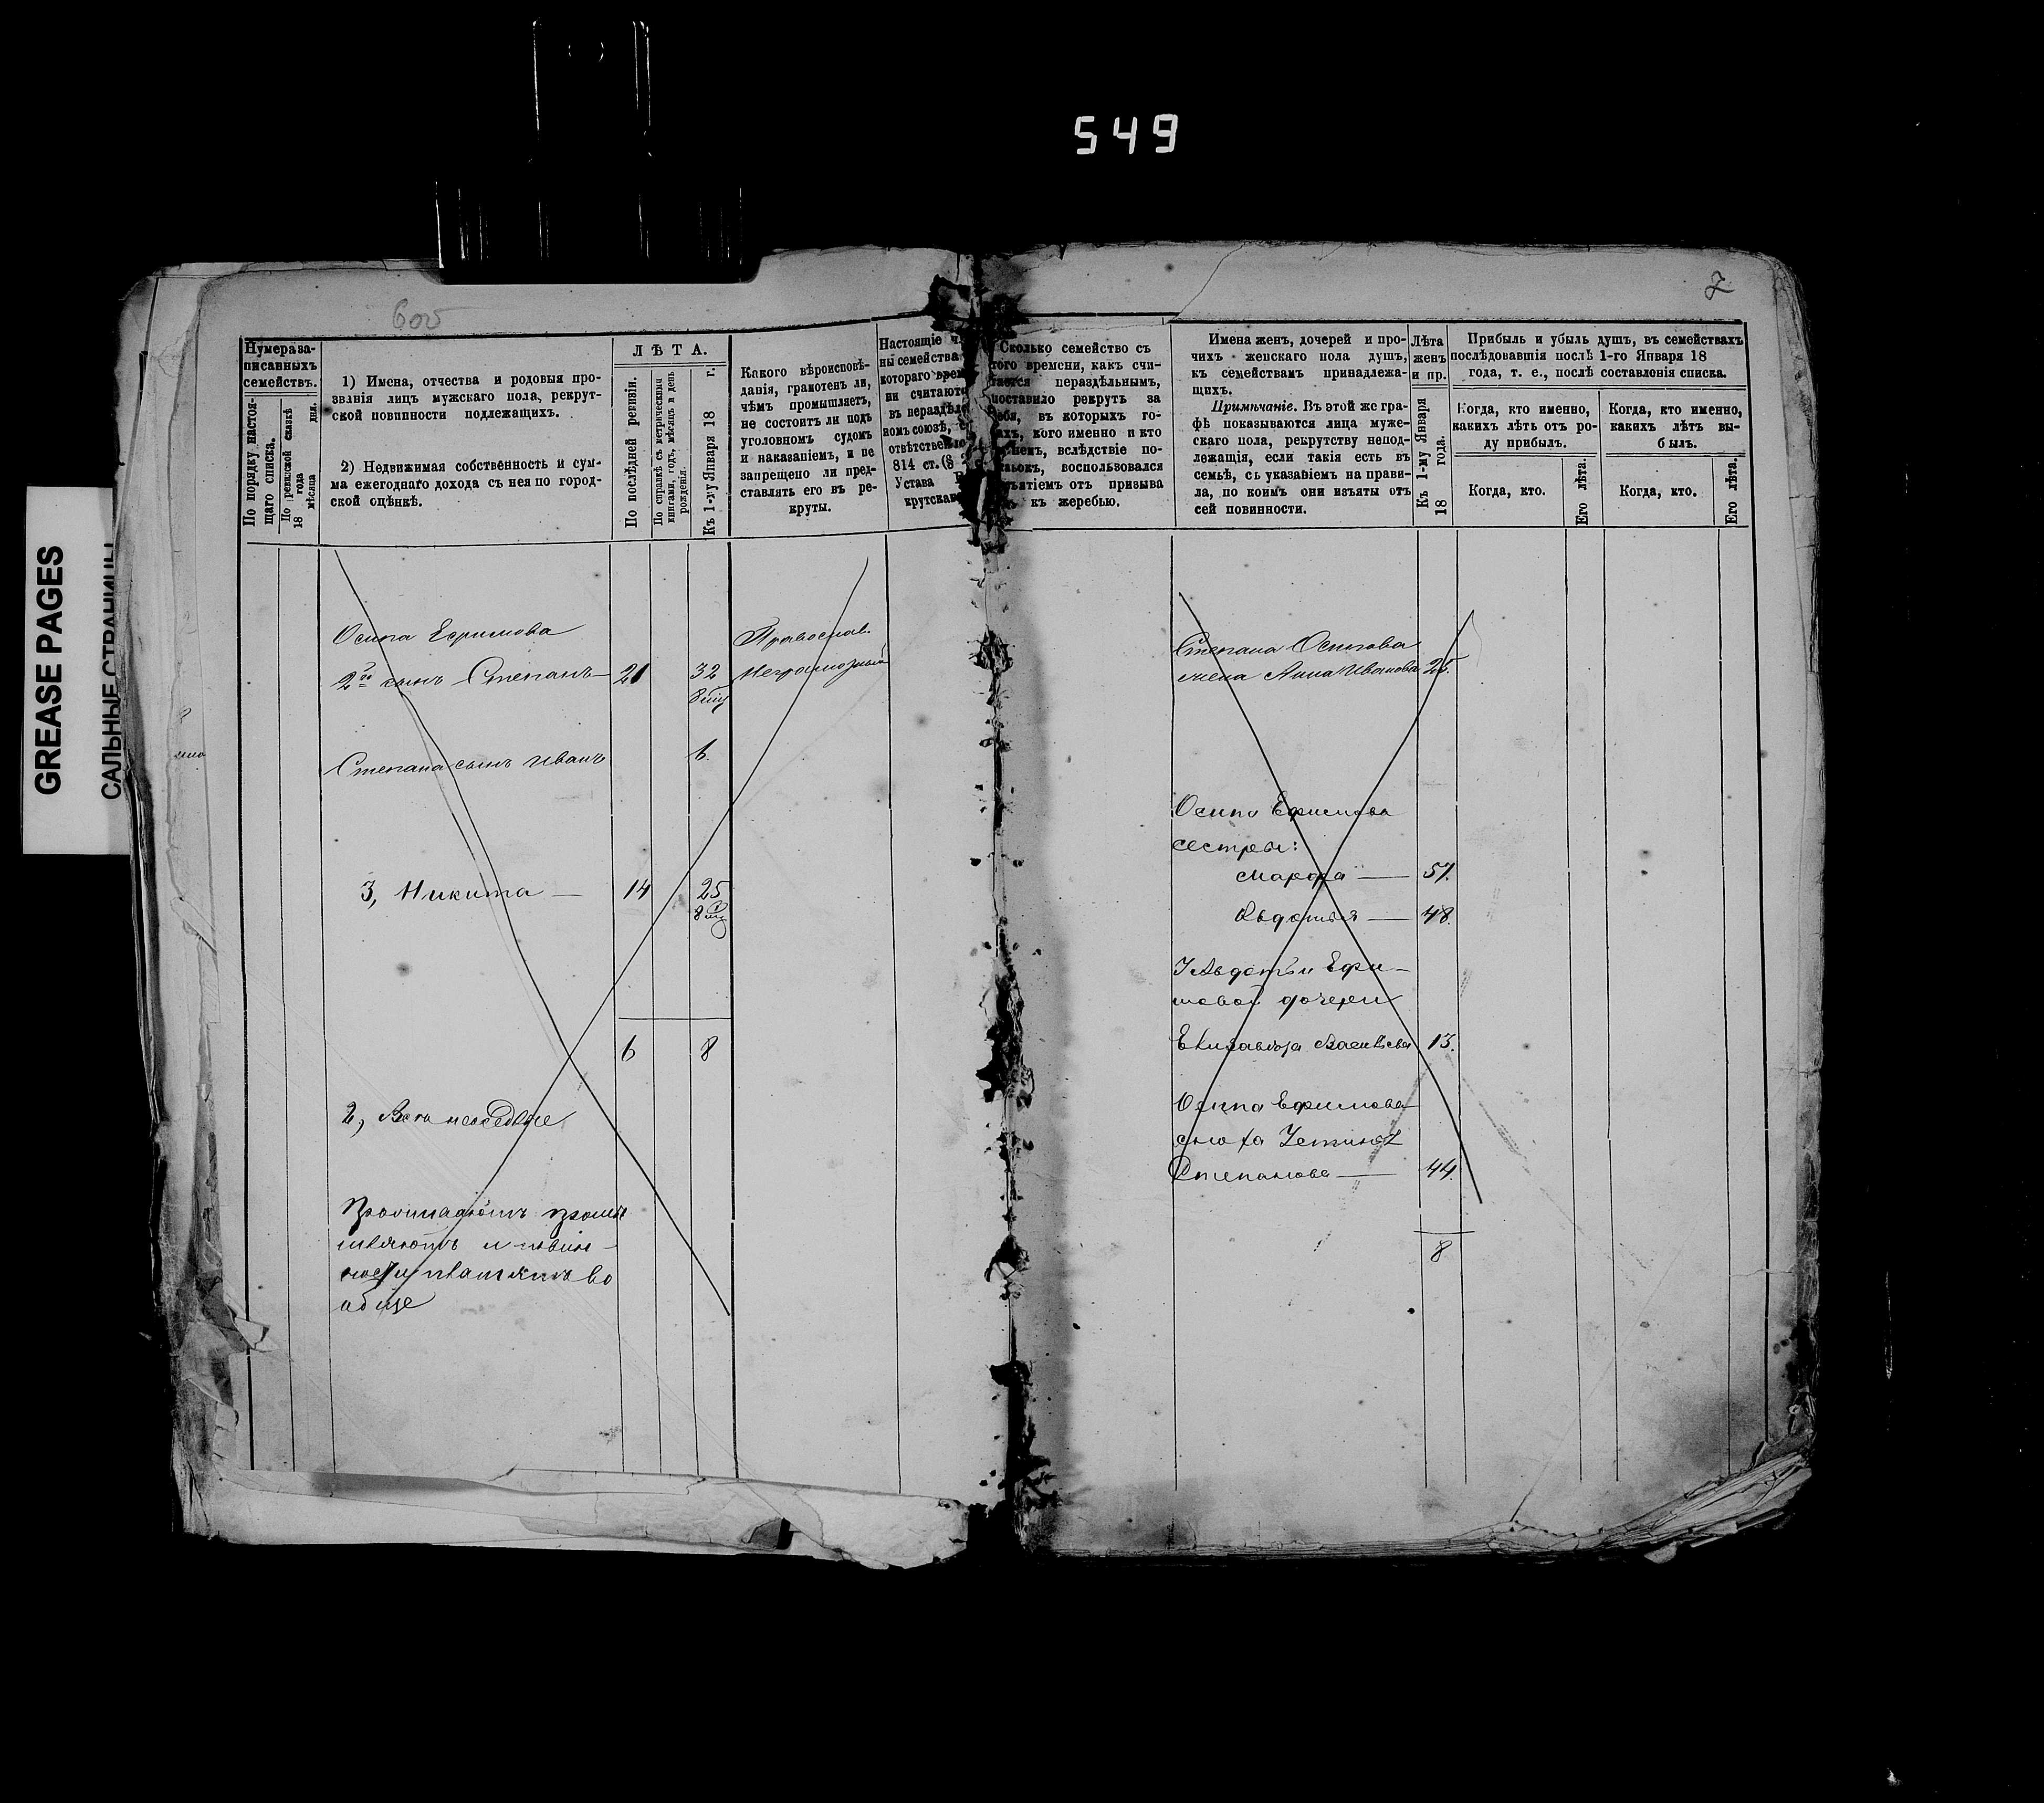 549
GREASE PAGES
САЛЬНЫЕ СТРАНИЦЫ
2
Нумера за-
писанныхъ
семействъ.
По порядку настоя-
щаго списка.
По ревизской сказкѣ
18 года
мѣсяца дня.
1) Имена, отчества и родовыя про-
званія лицъ мужскаго пола, рекрут-
ской повинности подлежащихъ.
2) Недвижимая собственность и сум-
ма ежегоднаго дохода съ нея по город-
ской оцѣнкѣ.
ЛѢТА.
По послѣдней ревизіи.
По справкѣ съ метрическими
книгами, годъ, мѣсяцъ и день
рожденія.
Къ 1-му Января 18 г.
Какого вѣроисповѣ-
данія, грамотенъ ли,
чѣмъ промышляетъ,
не состоитъ ли подъ
уголовномъ судомъ
и наказаніемъ, и не
запрещено ли пред-
ставлять его въ ре-
круты.
Настоящіе
ны семейства
котораго врем
ни считают
въ нераздѣл
номъ союзѣ,
отвѣтственно
814 ст. (§
Устава
крутска
Сколько семейство съ
того времени, какъ счи-
тается нераздѣльнымъ,
поставило рекрутъ за
себя, въ которыхъ го-
ахъ, кого именно и кто
немъ, вслѣдствіе по-
воспользовался
изъятіемъ отъ призыва
къ жеребью.
Имена женъ, дочерей и про-
чихъ женскаго пола душъ,
къ семействамъ принадлежа-
щихъ.
Примѣчаніе. Въ этой же гра-
фѣ показываются лица муже-
скаго пола, рекрутству непод-
лежащія, если такія есть въ
семьѣ, съ указаніемъ на прави-
ла, по коимъ они изъяты отъ
сей повинности.
Лѣта
женъ
и пр.
Къ 1-му Января
18 года.
Прибыль и убыль душъ, въ семействахъ
послѣдовавшія послѣ 1-го Января 18
года, т. е., послѣ составленія списка.
Когда, кто именно,
какихъ лѣтъ отъ ро-
ду прибылъ.
Когда, кто.
Его лѣта.
Когда, кто именно,
какихъ лѣтъ вы-
былъ.
Когда, кто.
Его лѣта.
Осипа Ефимова
2й сынъ Степанъ 21 32
Православ.
Неграмотный
Степана сынъ Иванъ 6.
3, Никита — 14 25
6 8
2, Вста несѣдѣе
промы
шляютъ и повин-
ности платятъ во
обще
Степана Осипова
жена Анна Иванова 25.
Осипа Ефимова
сестры:
Марфа — 51.
Авдотья — 48.
У Авдотьи Ефи-
мовой дочери
Елизавета Васильева 13.
Осипа Ефимова
сноха Устинья
Степанова — 44.
8